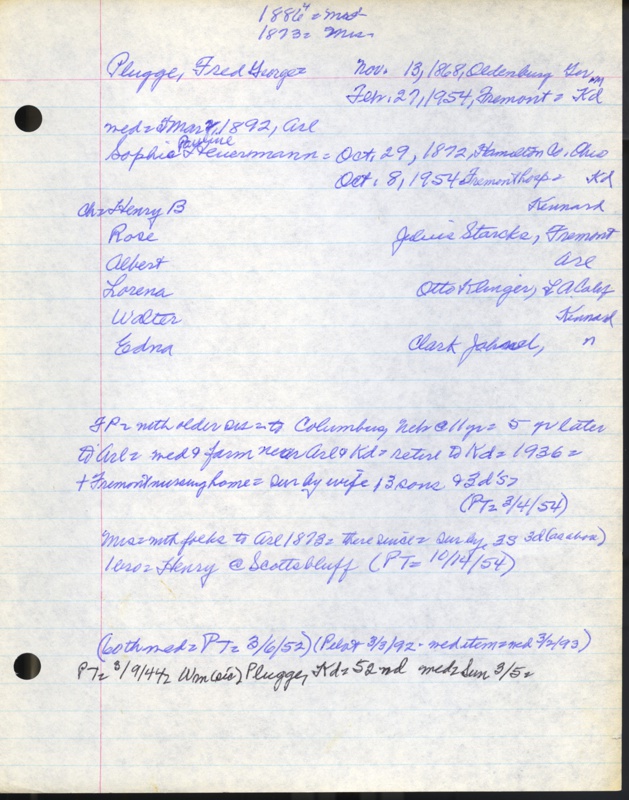 1886 = m
1873 = Mrs
Plugge, Fred George = Nov. 13, 1868, Oldenburg Germ
Feb. 27, 1954, Fremont = Kd
med = Mar , 1892, Arl
Pauline
Sophie Heuermann = Oct. 29, 1872, Hamilton Co. Ohio
Oct. 8, 1954 Fremont hosp = Kd
ch = Henry B Kennard
Rose Julius Starcks, Fremont
Albert Arl
Lorena Otto Klinger, L A. Calif
Walter Kennard
Edna Clark "
FP = with older sis = to Columbus, Neb @ 11 yr = 5 yr later
to Arl = med & farm near Arl & Kd = retire to Kd = 1936 =
+ Fremont nursing home = sur by wife, 3 sons & 3 d's =
(PT = 3/4/54)
Mrs = with folks to Arl 1873 = there since = sur by 3s 3d (as above)
Henry @ Scottsbluff (PT = 10/14/54)
(60th med = PT = 3/6/52) (Pilot 3/3/92 - med item = med 3/2/93)
PT = 3/9/44 = Wm (sic) Plugge, Kd = 52nd med = Sun 3/5 =